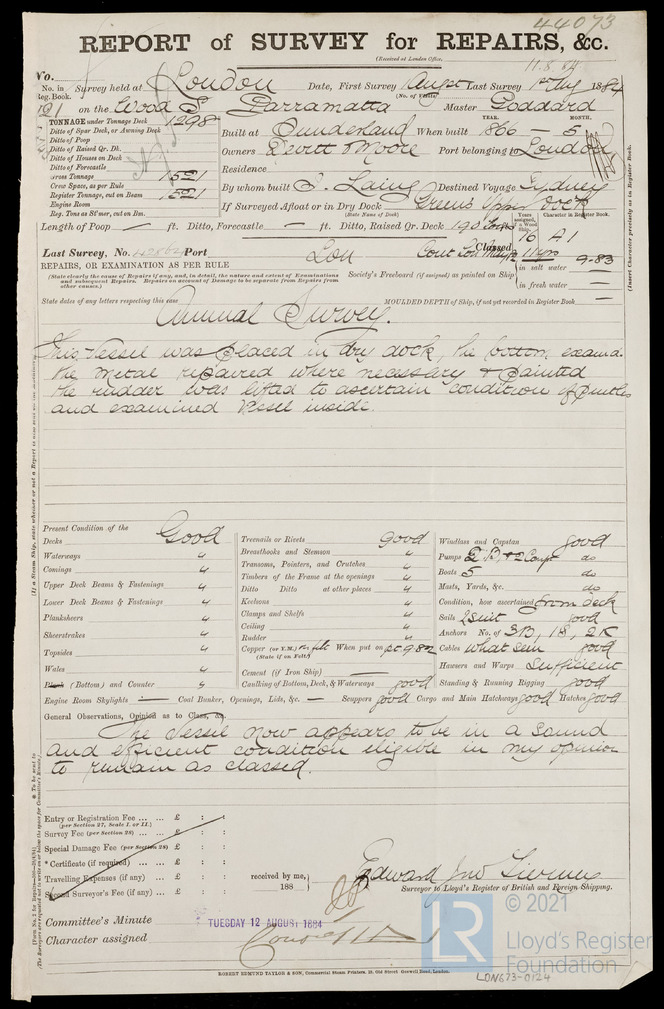 44073
REPORT of SURVEY for REPAIRS, &c.
(Received at London Office,
11.8.84
No.
No. in Reg. Book. Survey held at London Date, First Survey 1 Augst Last Survey 1st Aug 1884
191 on the Wood S. Parramatta (No. of Visits) Master Goddard
TONNAGE under Tonnage Deck 1298
Ditto of Spar Deck, or Awning Deck
Ditto of Poop
Ditto of Raised Qr. Dk.
Ditto of Houses on Deck
Ditto of Forecastle
Gross Tonnage 1521
Crew Space, as per Rule
Register Tonnage, cut on Beam 1521
Engine Room
Reg. Tons as St'mer, cut on Bm.
YEAR. MONTH.
Built at Sunderland When built 1866 — 5
Owners Devitt & Moore Port belonging to London
Residence
By whom built J. Laing Destined Voyage Sydney
If Surveyed Afloat or in Dry Dock Green's Upper Dock
(State Name of Dock)
Length of Poop — ft. Ditto, Forecastle — ft. Ditto, Raised Qr. Deck 190
Years assigned, if a Wood Ship. Character in Register Book.
10 A1
Last Survey, No. Port Lon Classed 11 yrs 9-83
REPAIRS, OR EXAMINATION AS PER RULE
(State clearly the cause of Repairs if any, and, in detail, the nature and extent of Examinations and subsequent Repairs. Repairs on account of Damage to be separate from Repairs from other causes.)
Society's Freeboard (if assigned) as painted on Ship
in salt water —
in fresh water —
State dates of any letters respecting this case
MOULDED DEPTH of Ship, if not yet recorded in Register Book
Annual Survey.
This Vessel was placed in dry dock, the bottom examd.
the metal repaired where necessary & painted
the rudder was lifted to ascertain condition of pintles
and examined Vessel inside.
Present Condition of the
Decks Good
Waterways "
Comings "
Upper Deck Beams & Fastenings "
Lower Deck Beams & Fastenings "
Planksheers "
Sheerstrakes "
Topsides "
Wales "
Plank (Bottom) and Counter "
Treenails or Rivets good
Breasthooks and Stemson "
Transoms, Pointers, and Crutches "
Timbers of the Frame at the openings "
Ditto Ditto at other places "
Keelsons "
Clamps and Shelfs "
Ceiling "
Rudder "
Copper (or Y.M.) on felt When put on pt 9.82
(State if on Felt.)
Cement (if Iron Ship) —
Caulking of Bottom, Deck, & Waterways good
Windlass and Capstan good
Pumps do
Boats 5 do
Masts, Yards, &c. do
Condition, how ascertained from deck
Sails 2 Suit good
Anchors No. of 3B, 1S, 2K
Cables what seen good
Hawsers and Warps Sufficient
Standing & Running Rigging good
Engine Room Skylights — Coal Bunker, Openings, Lids, &c. — Scuppers good Cargo and Main Hatchways good Hatches good
General Observations, Opinion as to Class, &c.
The Vessel now appears to be in a sound
and efficient condition eligible in my opinion
to remain as classed.
Entry or Registration Fee ... ... £ : :
(per Section 27, Scale I. or II.)
Survey Fee (per Section 28) ... £ : :
Special Damage Fee (per Section 28) £ : :
* Certificate (if required) ... £ : :
Travelling Expenses (if any) ... £ : :
Second Surveyor's Fee (if any) ... £ : :
received by me,
188
Edward Jno Tierney
Surveyor to Lloyd's Register of British and Foreign Shipping.
Committee's Minute
TUESDAY 12 AUGUST 1884
Character assigned
ROBERT EDMUND TAYLOR & SON, Commercial Steam Printers, 19, Old Street, Goswell Road, London.
(Insert Character precisely as in Register Book.
© 2021
LR
Lloyd's Register
Foundation
LON673-0124